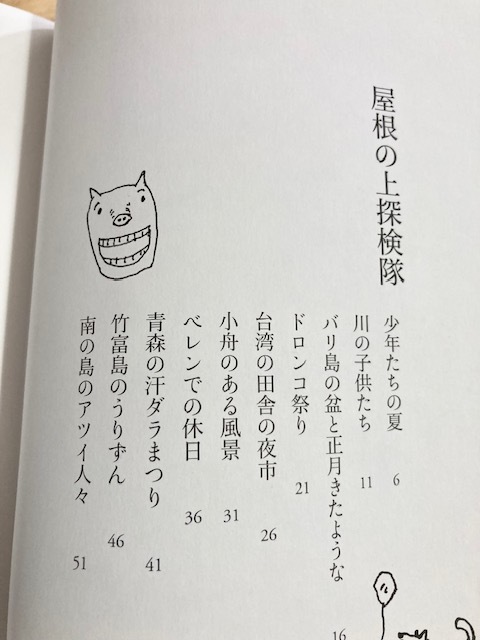 屋根の上探検隊
少年たちの夏 6
川の子供たち 11
バリ島の盆と正月きたような 16
ドロンコ祭り 21
台湾の田舎の夜市 26
小舟のある風景 31
ベレンでの休日 36
青森の汗ダラまつり 41
竹富島のうりずん 46
南の島のアツイ人々 51